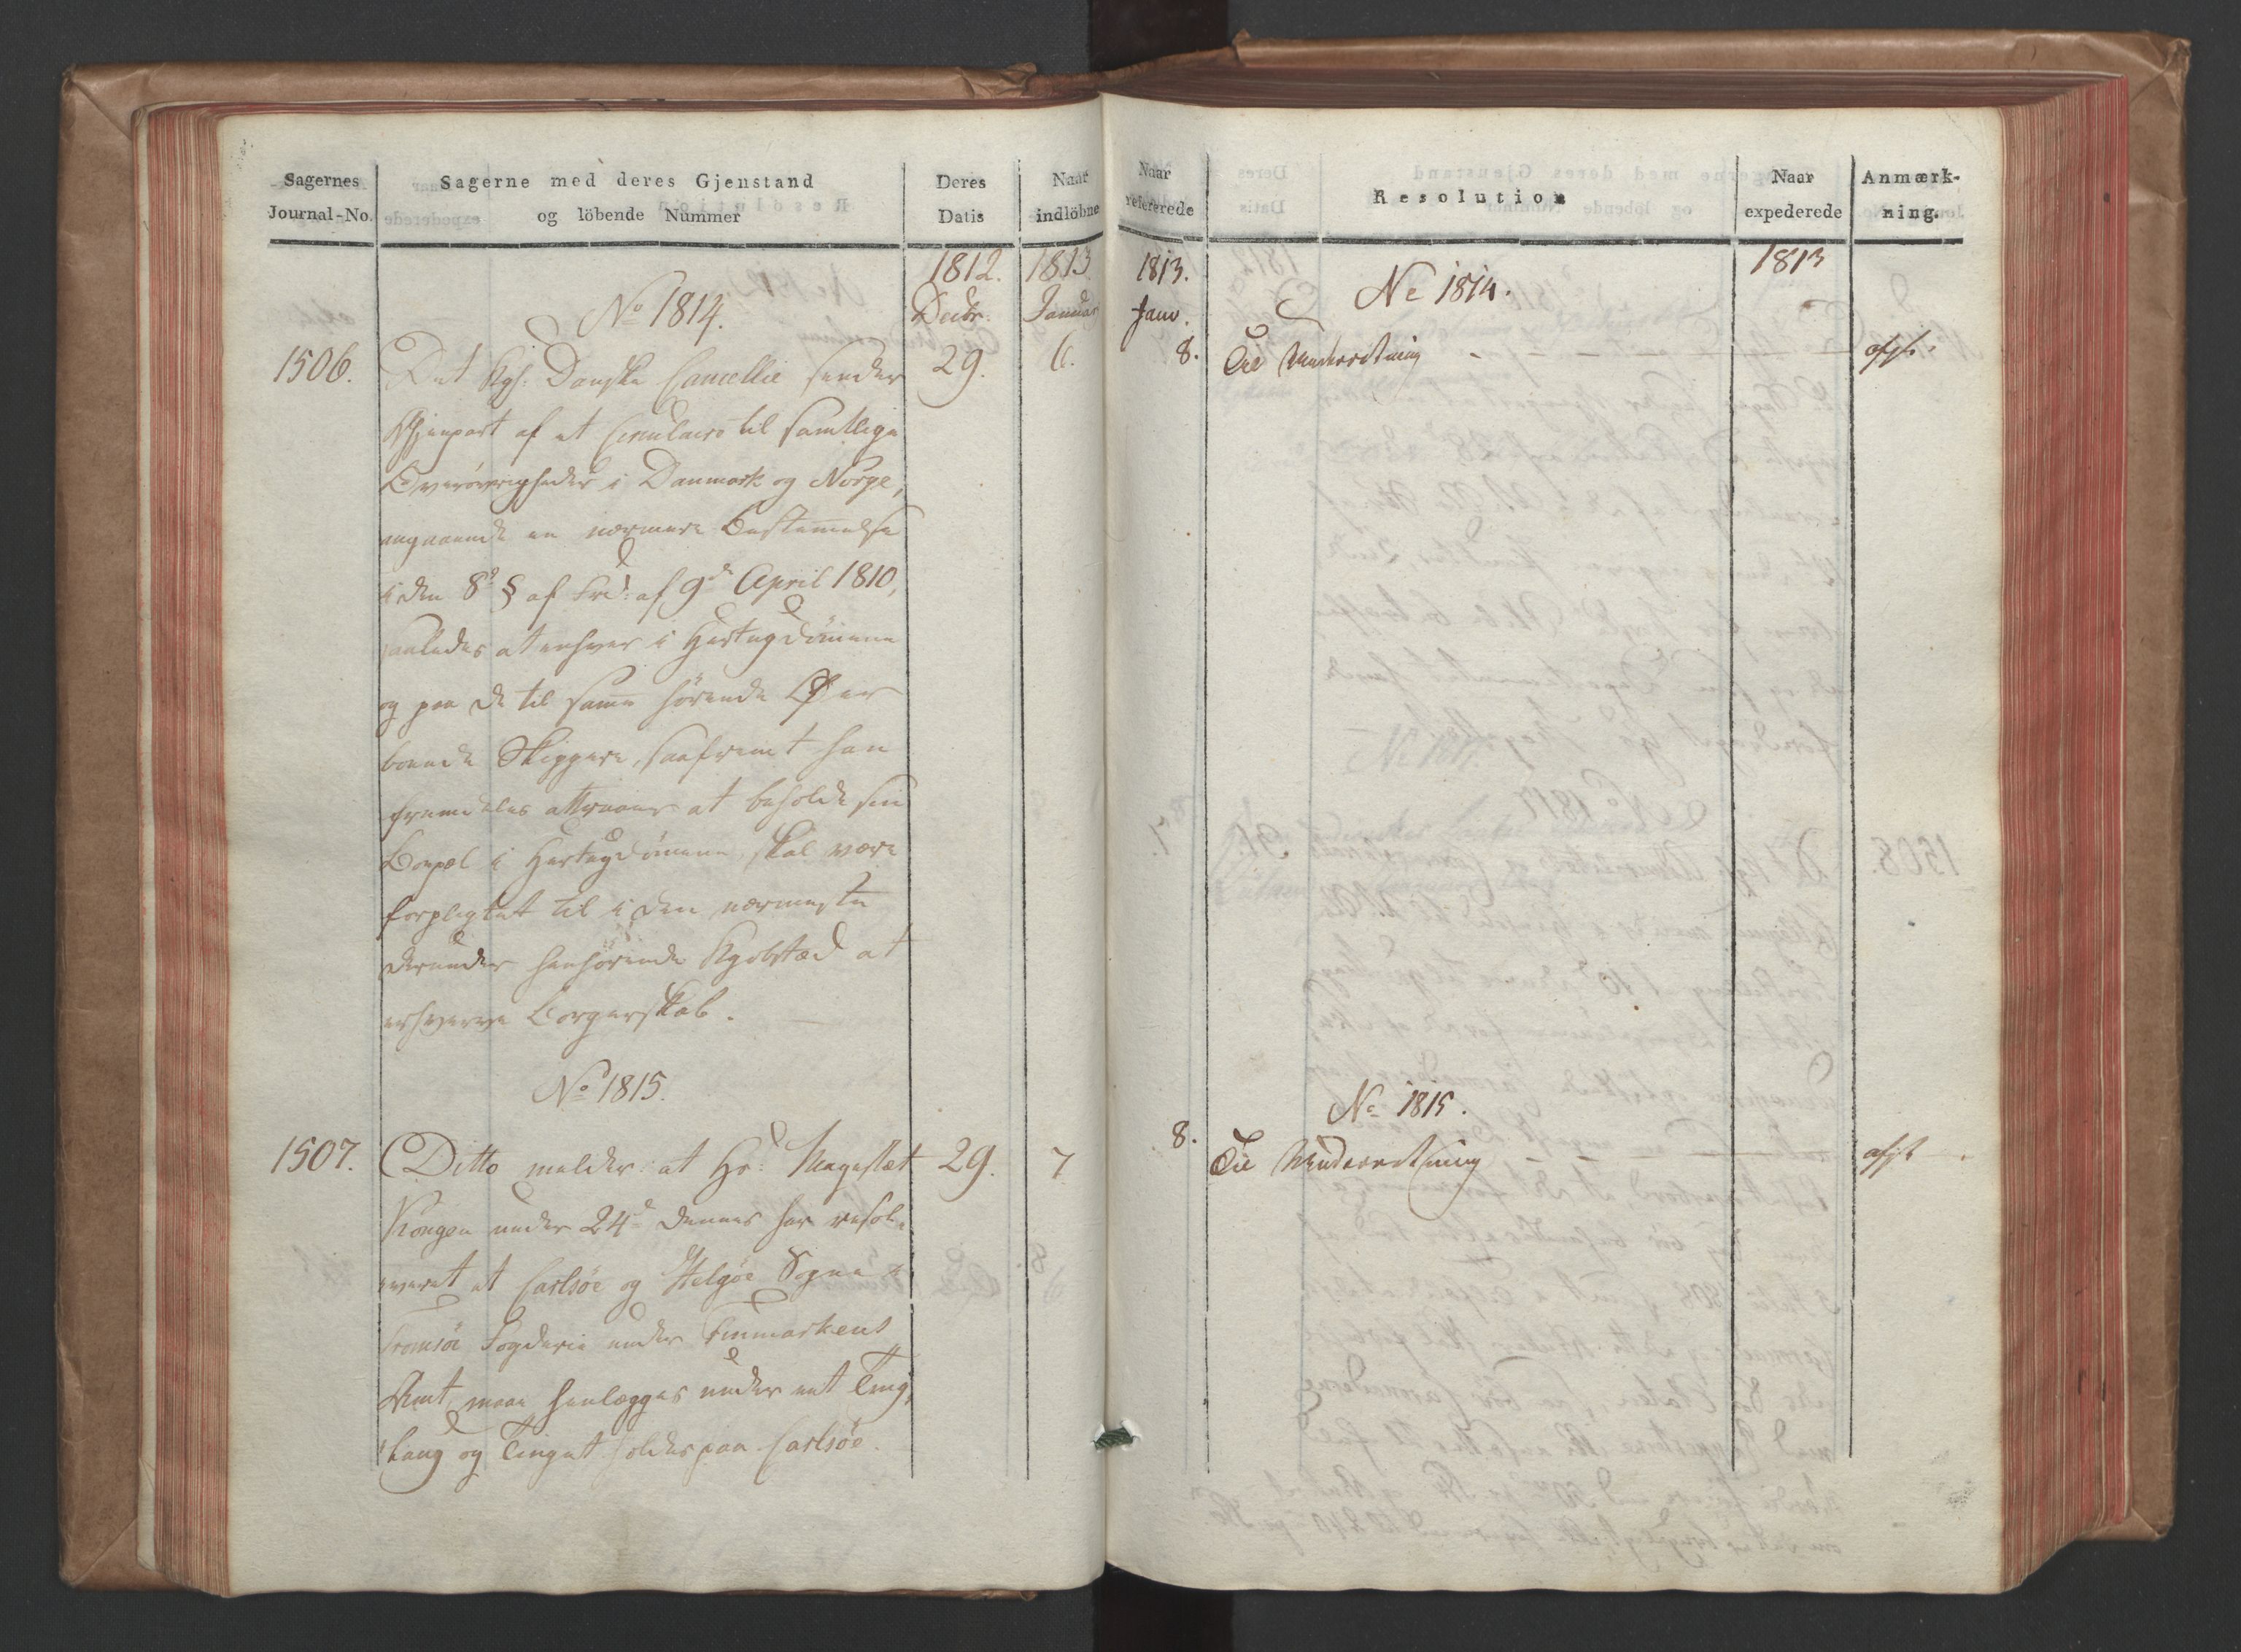 Sagernes
Journal-No.
Sagerne med deres Gjenstand
og löbende Nummer
Deres
Datis
Naar
indlöbne
1812.
Decbr.
1813.
Januar
No 1814.
1506.
Det Kgl: Danske Cancellie sender
29.
6.
Gjenpart af et Circulaire til samtlige
Overøvrigheder i Danmark og Norge,
angaaende en nærmere Bestemmelse
i den 8de § af Frd: af 9de April 1810,
saaledes at enhver i Hertugdömmene
og paa de til samme hörende Øer
boende Skippere, saafremt han
fremdeles attraaer at beholde sin
Bopæl i Hertugdömmene, skal være
forpligtet til i den nærmeste
derunder henhörende Kjøbstæd at
erhverve Borgerskab.
No 1815.
1507.
Ditto melder: at Hs: Majestæt
29.
7
Kongen under 24de dennes har resol-
veret at Carlsöe og Helgöe Sogne i
Tromsöe Fogderie under Finmarkens
Amt, maae henlægges under eet Ting-
laug og Tinget holdes paa Carlsöe.
Naar
refererede
Resolution
Naar
expederede
Anmærk-
ning.
1813.
Janv.
1813
No 1814.
8.
Til Underretning
afgt.
No 1815.
8.
Til Underretning
afgt